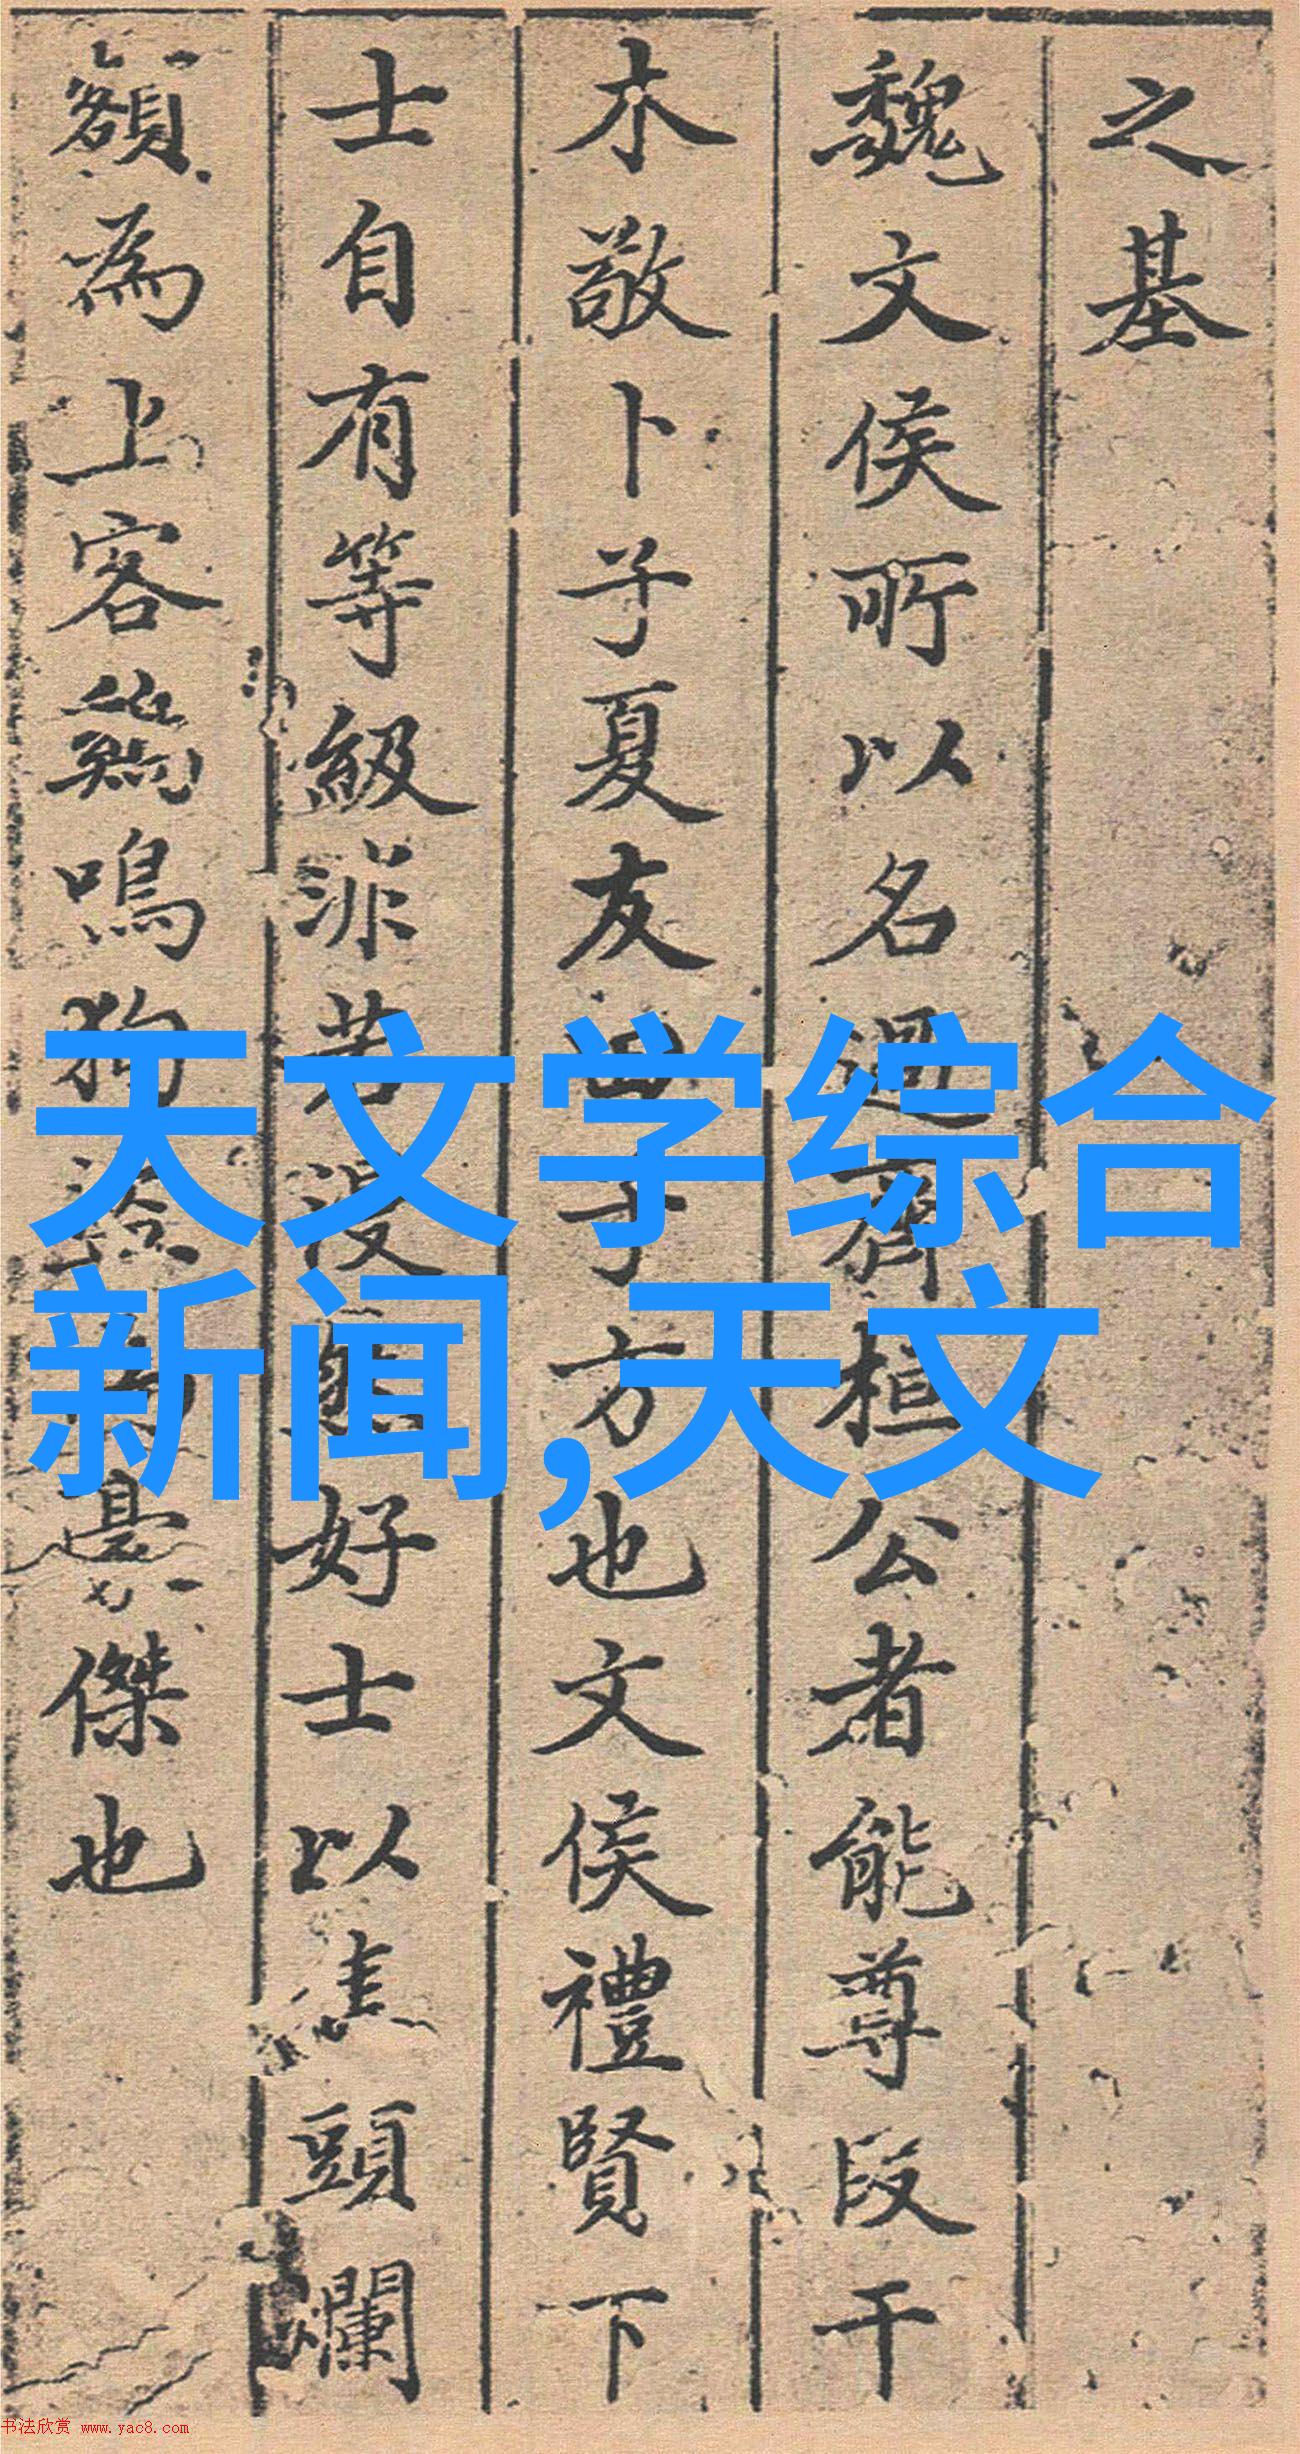 之基
魏文侯所以名過齊桓公者能尊段干
木敬卜子夏友田子方也文侯禮賢下
士自有等級非若漫然好士以焦頭爛
額為上客雞鳴狗豪傑也
天文学综合
新闻,天文
书法欣赏 www.yac8.com